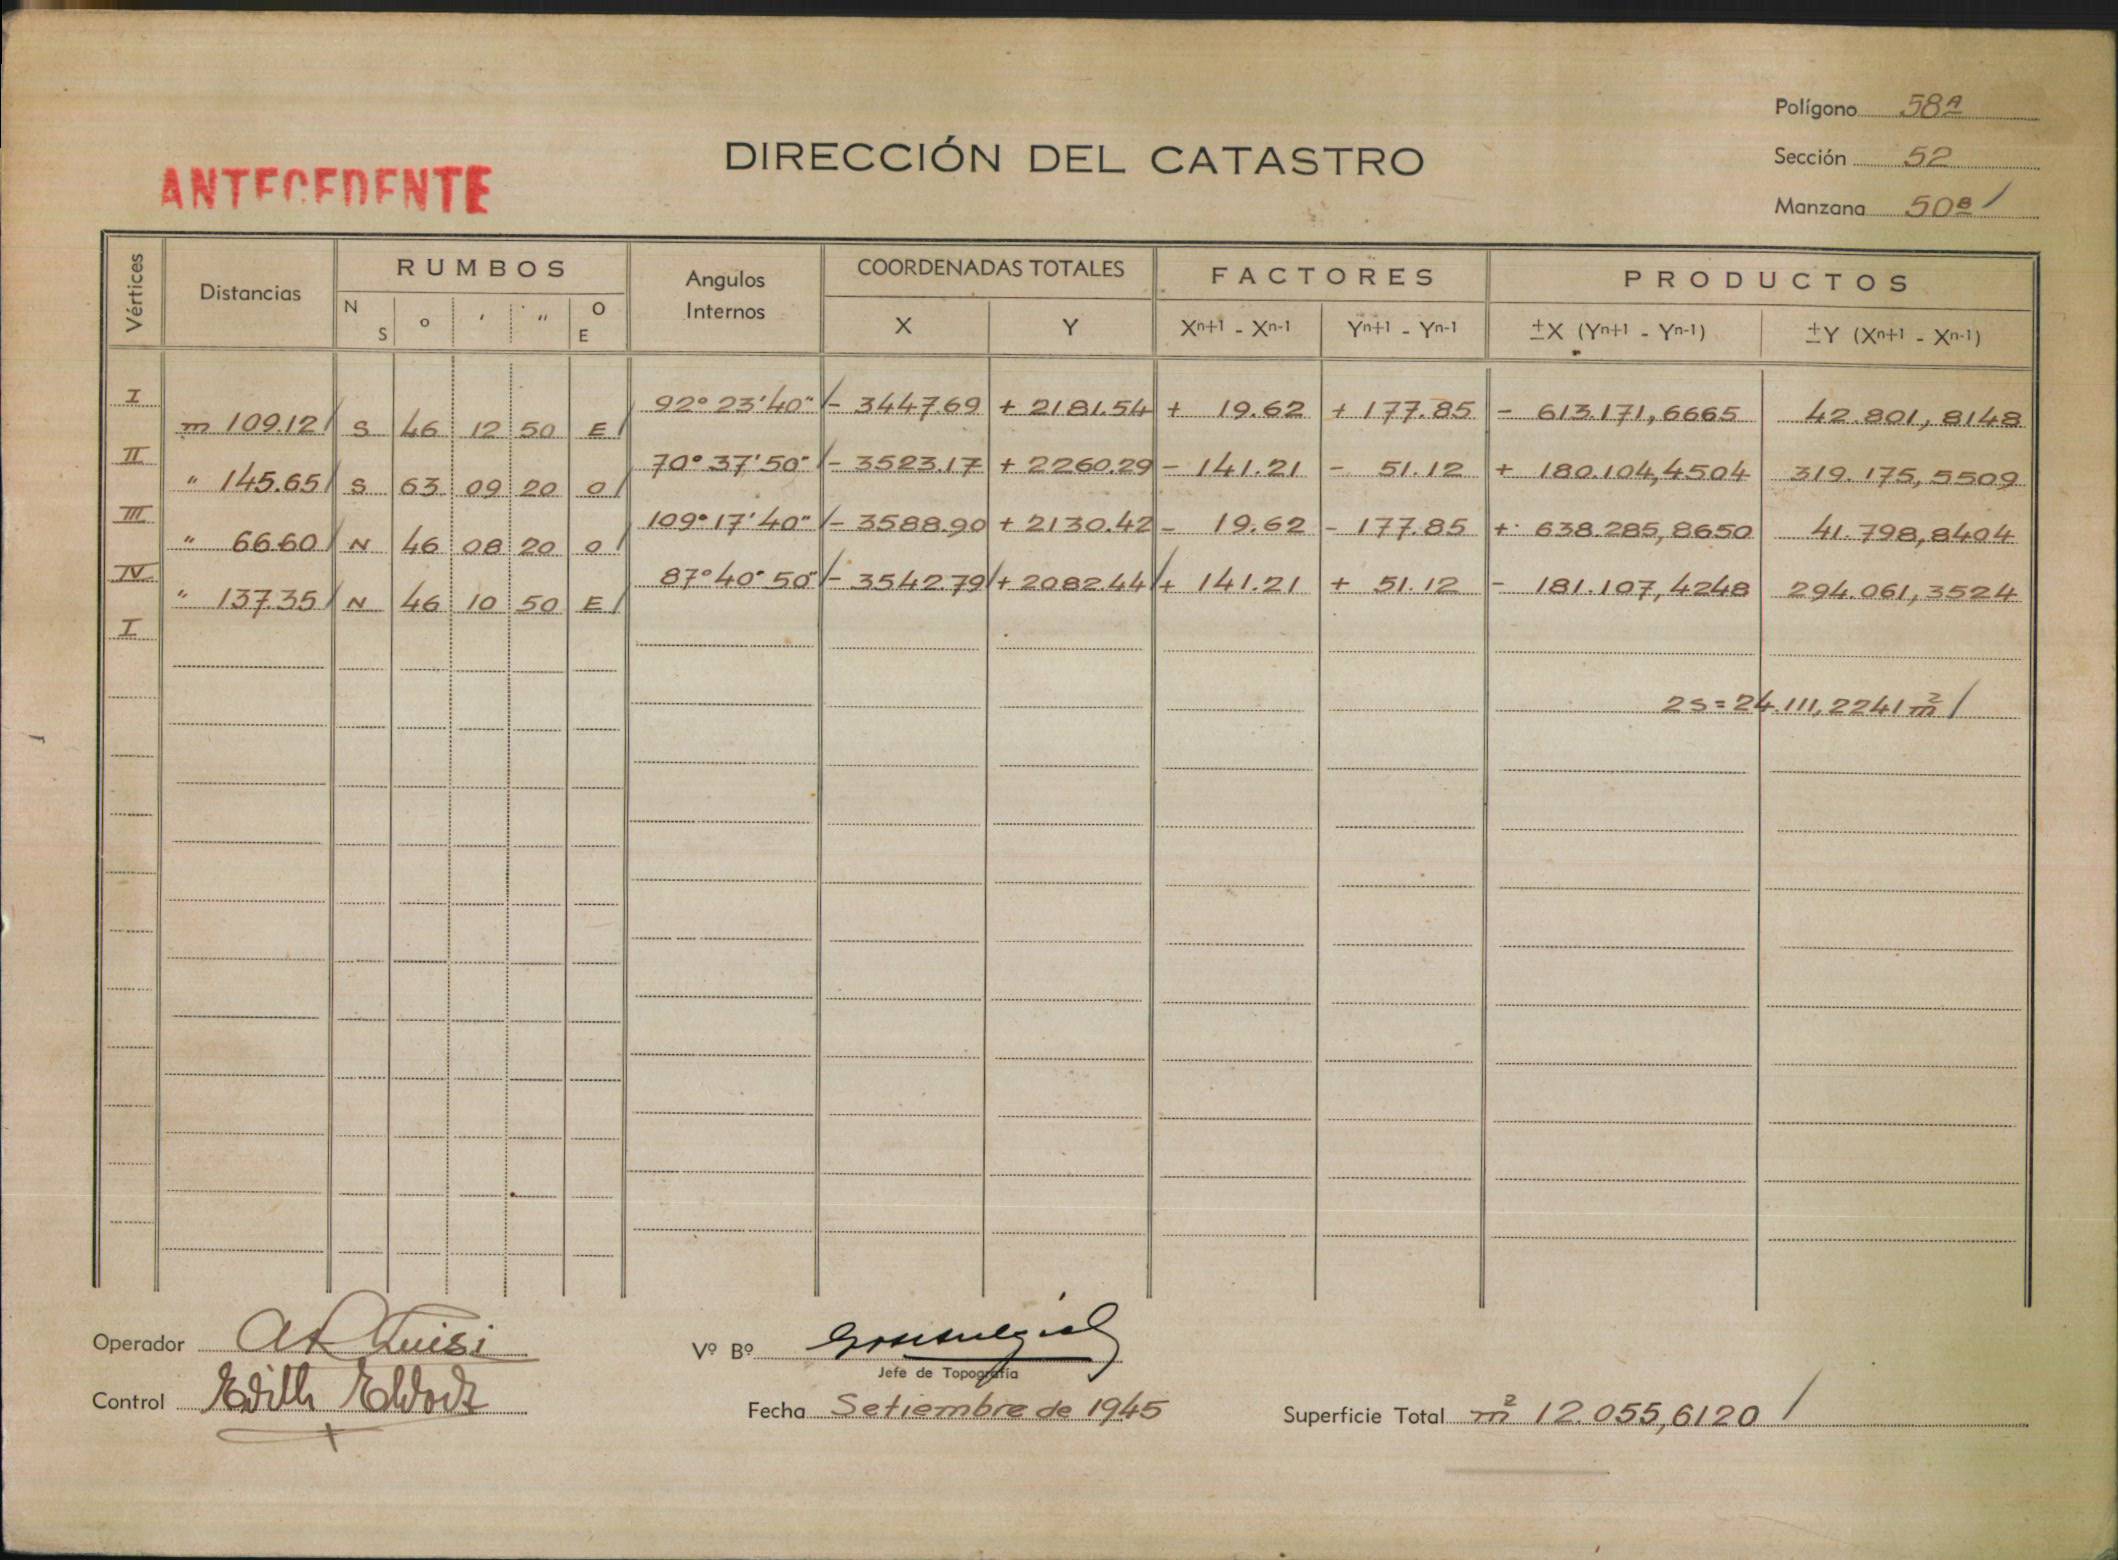 Polígono 58ᴬ
DIRECCIÓN DEL CATASTRO
Sección 52
ANTECEDENTE
Manzana 50ᴮ /
Vértices Distancias RUMBOS Angulos Internos COORDENADAS TOTALES FACTORES PRODUCTOS
N S o ' " O E X Y Xn+1 - Xn-1 Yn+1 - Yn-1 ±X (Yn+1 - Yn-1) ±Y (Xn+1 - Xn-1)
I 92° 23' 40" / - 3447.69 + 2181.54 + 19.62 + 177.85 - 613.171,6665 42.801,8148
m 109.12 / S 46 12 50 E /
II 70° 37' 50" / - 3523.17 + 2260.29 - 141.21 - 51.12 + 180.104,4504 319.175,5509
" 145.65 / S 63 09 20 O /
III 109° 17' 40" / - 3588.90 + 2130.42 - 19.62 - 177.85 + 638.285,8650 41.798,8404
" 66.60 / N 46 08 20 O /
IV 87° 40' 50" / - 3542.79 / + 2082.44 / + 141.21 + 51.12 - 181.107,4248 294.061,3524
" 137.35 / N 46 10 50 E /
I
2S = 24.111,2241 m² /
Operador
Vº Bº
Jefe de Topografía
Control Edith
Fecha Setiembre de 1945
Superficie Total m² 12.055,6120 /